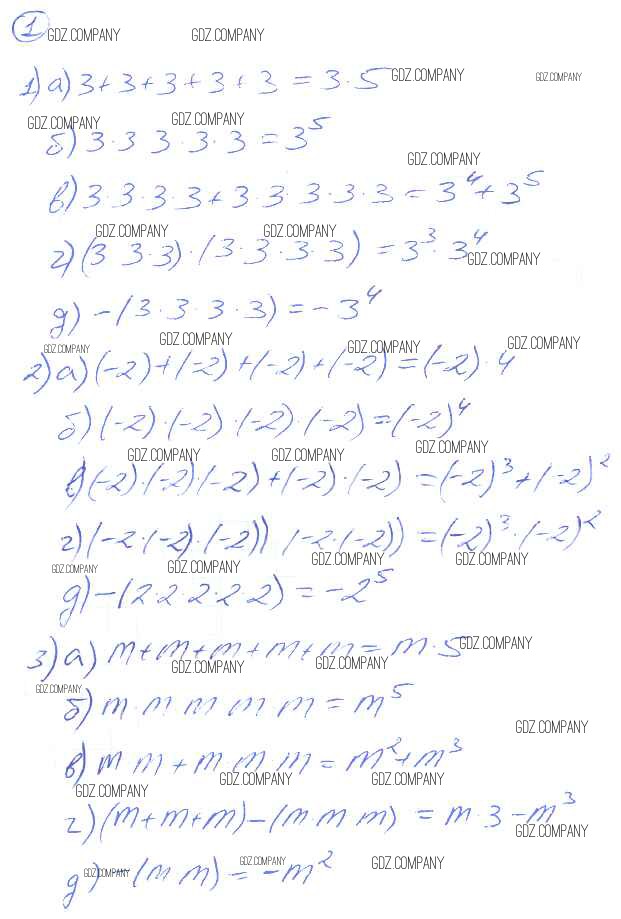 1
GDZ.COMPANY GDZ.COMPANY
1) а) 3+3+3+3+3 = 3·5 GDZ.COMPANY GDZ.COMPANY
GDZ.COMPANY GDZ.COMPANY
б) 3·3 3·3·3 = 3⁵
GDZ.COMPANY
в) 3·3·3·3+3·3·3·3·3 = 3⁴+3⁵
GDZ.COMPANY GDZ.COMPANY
г) (3 3·3)·(3·3·3·3) = 3³·3⁴
GDZ.COMPANY
д) -(3·3·3·3) = -3⁴
GDZ.COMPANY GDZ.COMPANY GDZ.COMPANY GDZ.COMPANY
2) а) (-2)+(-2)+(-2)+(-2) = (-2)·4
б) (-2)·(-2)·(-2)·(-2) = (-2)⁴
GDZ.COMPANY GDZ.COMPANY GDZ.COMPANY
в) (-2)·(-2)·(-2)+(-2)·(-2) = (-2)³+(-2)²
г) (-2·(-2)·(-2)) (-2·(-2)) = (-2)³·(-2)²
GDZ.COMPANY GDZ.COMPANY GDZ.COMPANY GDZ.COMPANY
д) -(2·2·2·2·2) = -2⁵
3) а) m+m+m+m+m = m·5 GDZ.COMPANY
GDZ.COMPANY GDZ.COMPANY
GDZ.COMPANY
б) m·m m m m = m⁵
GDZ.COMPANY
в) m m + m m m = m²+m³
GDZ.COMPANY GDZ.COMPANY GDZ.COMPANY
г) (m+m+m)-(m m m) = m·3-m³
GDZ.COMPANY
д) -(m m) = -m²
GDZ.COMPANY GDZ.COMPANY GDZ.COMPANY